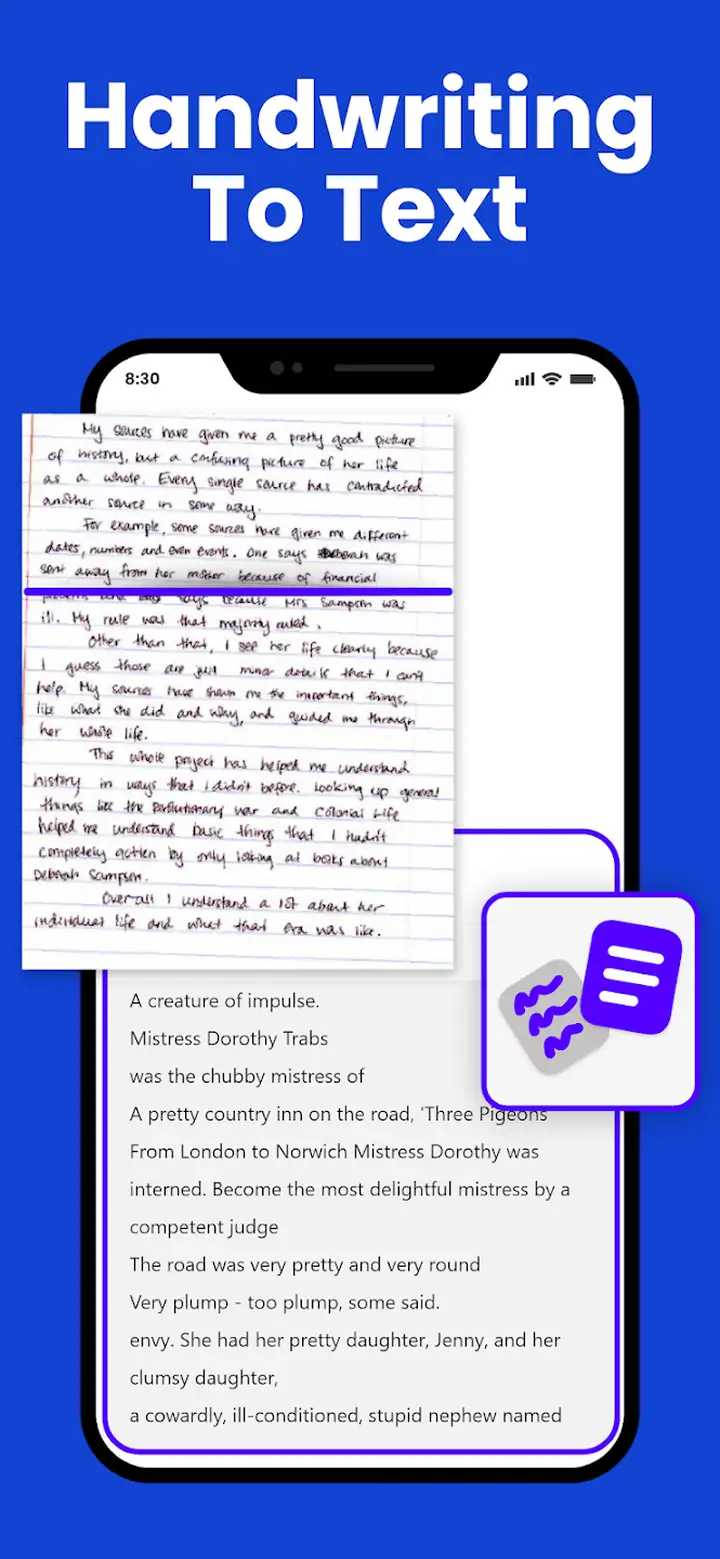 Handwriting
To Text
8:30
My sources have given me a pretty good picture
of history, but a confusing picture of her life
as a whole. Every single source has contradicted
another source in some way.
For example, some sources have given me different
dates, numbers and even events. One says Deborah was
sent away from her mother because of financial
says because Mrs Sampson was
ill. My rule was that majority ruled.
Other than that, I see her life clearly because
I guess those are just minor details that I can't
help. My sources have shown me the important things,
like what she did and why, and guided me through
her whole life.
This whole project has helped me understand
history in ways that I didn't before. Looking up general
things like the Revolutionary War and Colonial Life
helped me understand basic things that I hadn't
completely gotten by only looking at books about
Deborah Sampson.
Overall I understand a lot about her
individual life and what that era was like.
A creature of impulse.
Mistress Dorothy Trabs
was the chubby mistress of
A pretty country inn on the road, 'Three Pigeons'
From London to Norwich Mistress Dorothy was
interned. Become the most delightful mistress by a
competent judge
The road was very pretty and very round
Very plump - too plump, some said.
envy. She had her pretty daughter, Jenny, and her
clumsy daughter,
a cowardly, ill-conditioned, stupid nephew named